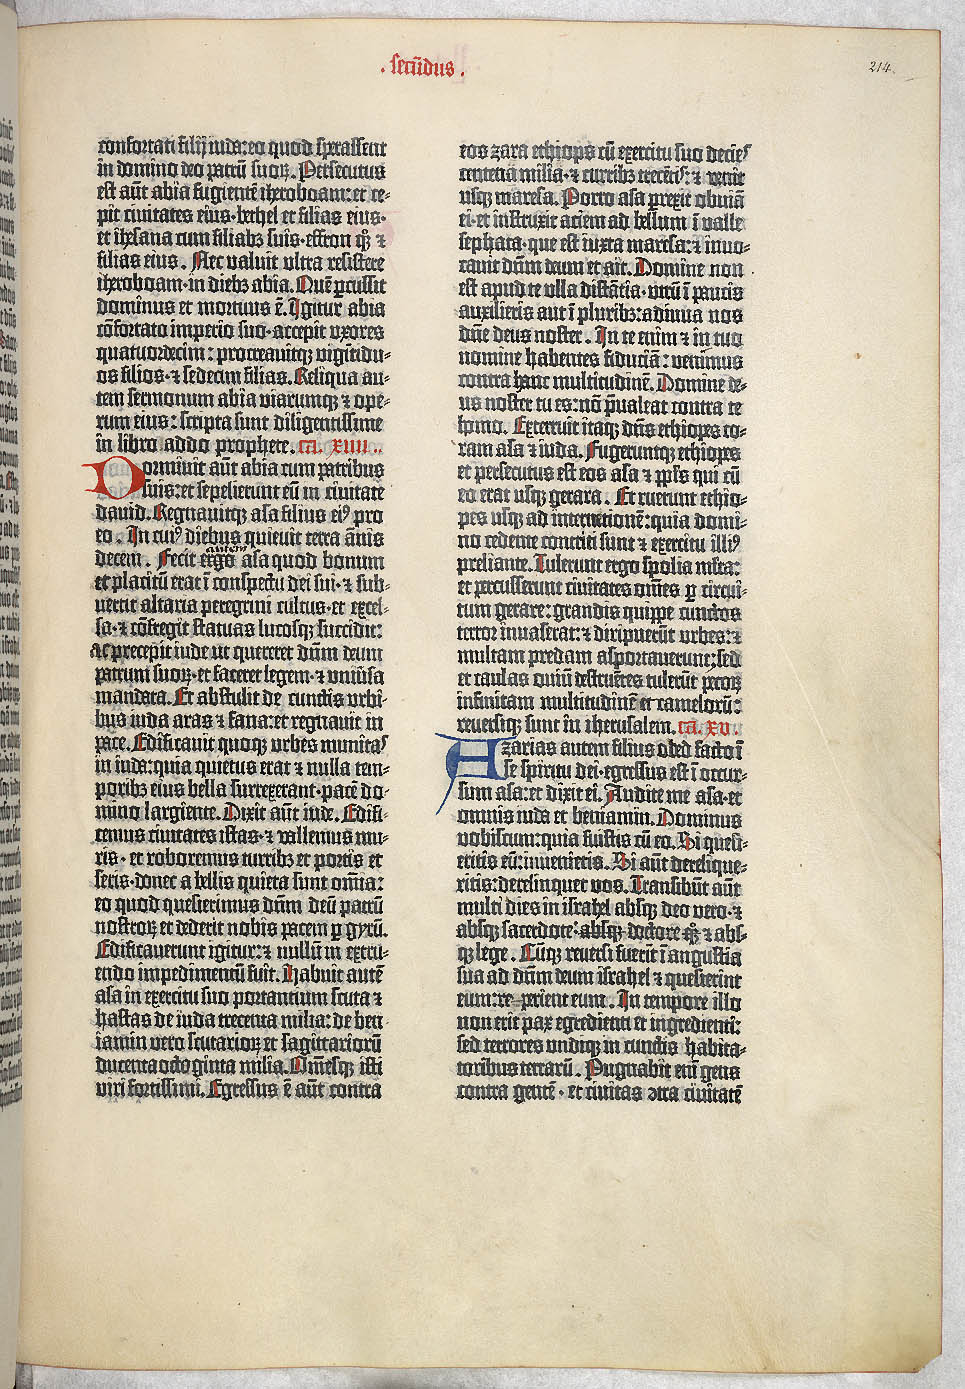 · secūdus .
214.
confortati filij iuda: eo quod sperassent
in domino deo patrū suoꝝ. Persecutus
est aūt abia fugientē iheroboam: et ce-
pit ciuitates eius· bethel et filias eius·
et ihesana cum filiabꝫ suis· effron qꝫ ⁊
filias eius. Nec valuit vltra resistere
iheroboam· in diebꝫ abia. Quē ꝑcussit
dominus et mortuus ē. Igitur abia
cōfortato imperio suo· accepit vxores
quatuordecim: procreauitqꝫ viginti du-
os filios· ⁊ sedecim filias. Reliqua au-
tem sermonum abia viarumqꝫ ⁊ ope-
rum eius: scripta sunt diligentissime
in libro addo prophete. ca. xiiii.
Dormiuit aūt abia cum patribus
suis: et sepelierunt eū in ciuitate
dauid. Regnauitqꝫ asa filius eiꝰ pro
eo. In cuiꝰ diebus quieuit terra ānis
autem
decem. Fecit ergo asa quod bonum
et placitū erat ī conspectu dei sui· ⁊ sub-
uertit altaria peregrini cultus· et excel-
sa· ⁊ cōfregit statuas lucosqꝫ succidit:
Ac precepit iude ut quereret dn̄m deum
patrum suoꝝ· et faceret legem· ⁊ vniūsa
mandata. Et abstulit de cunctis vrbi-
bus iuda aras ⁊ fana: et regnauit in
pace. Edificauit quoqꝫ vrbes munitas
in iuda: quia quietus erat ⁊ nulla tem-
poribꝫ eius bella surrexerant· pacē do-
mino largiente. Dixit aūt iude. Edifi-
cemus ciuitates istas· ⁊ vallemus mu-
ris· et roboremus turribꝫ et portis et
seris· donec a bellis quieta sunt om̄ia:
eo quod quesierimus dn̄m deū patrū
nostroꝝ et dederit nobis pacem ꝑ gyrū.
Edificauerunt igitur: ⁊ nullū in extru-
endo impedimentū fuit. Habuit autē
asa in exercitu suo portantium scuta ⁊
hastas de iuda trecenta milia: de ben-
iamin vero scutarioꝝ et sagittarioꝝū
ducenta octoginta milia. Om̄esqꝫ isti
viri fortissimi. Egressus ē aūt contra
eos zara ethiops cū exercitu suo decieˢ
centena milia· ⁊ curribꝫ trecētis: ⁊ venit
usqꝫ maresa. Porro asa ꝑrexit obuiā
ei· et instruxit aciem ad bellum ī valle
sephata· que est iuxta maresa: ⁊ inuo-
cauit dn̄m deum et ait. Domine non
est apud te vlla distātia· vtrū ī paucis
auxilieris aut ī pluribꝫ: adiuua nos
dn̄e deus noster. In te enim ⁊ in tuo
nomine habentes fiduciā: venimus
contra hanc multitudinē. Domine de-
us noster tu es: nō p̄ualeat contra te
homo. Exterruit itaqꝫ dn̄s ethiopes co-
ram asa ⁊ iuda. Fugeruntqꝫ ethiopes
et persecutus est eos asa ⁊ pp̄ls qui cū
eo erat usqꝫ gerara. Et ruerunt ethio-
pes usqꝫ ad internetionē: quia domi-
no cedente contriti sunt ⁊ exercitu illiꝰ
preliante. Tulerunt ergo spolia mīta:
et percusserunt ciuitates om̄es ꝑ circui-
tum gerare: grandis quippe cunctos
terror inuaserat: ⁊ diripuerūt vrbes: ⁊
multam predam asportauerunt: sed
et caulas ouiū destruētes tulerūt pecoꝝ
infinitam multitudinē et cameloꝝū:
reuersiqꝫ sunt in iherusalem. ca. xv.
Azarias autem filius obed facto ī
se spiritu dei· egressus est ī occur-
sum asa: et dixit ei. Audite me asa· et
omnis iuda et beniamin. Dominus
vobiscum: quia fuistis cū eo. Si quesi-
eritis eū: inuenietis. Si aūt derelique-
ritis: derelinquet vos. Transibūt aūt
multi dies in israhel absqꝫ deo vero· ⁊
absqꝫ sacerdote: absqꝫ doctore qꝫ ⁊ abs-
qꝫ lege. Cūqꝫ reuersi fuerit ī angustia
sua ad dn̄m deum israhel ⁊ quesierint
eum: re-perient eum. In tempore illo
non erit pax egredienti et ingredienti:
sed terrores vndiqꝫ in cunctis habita-
toribus terrarū. Pugnabit eni gens
contra gentē· et ciuitas ↄtra ciuitatē